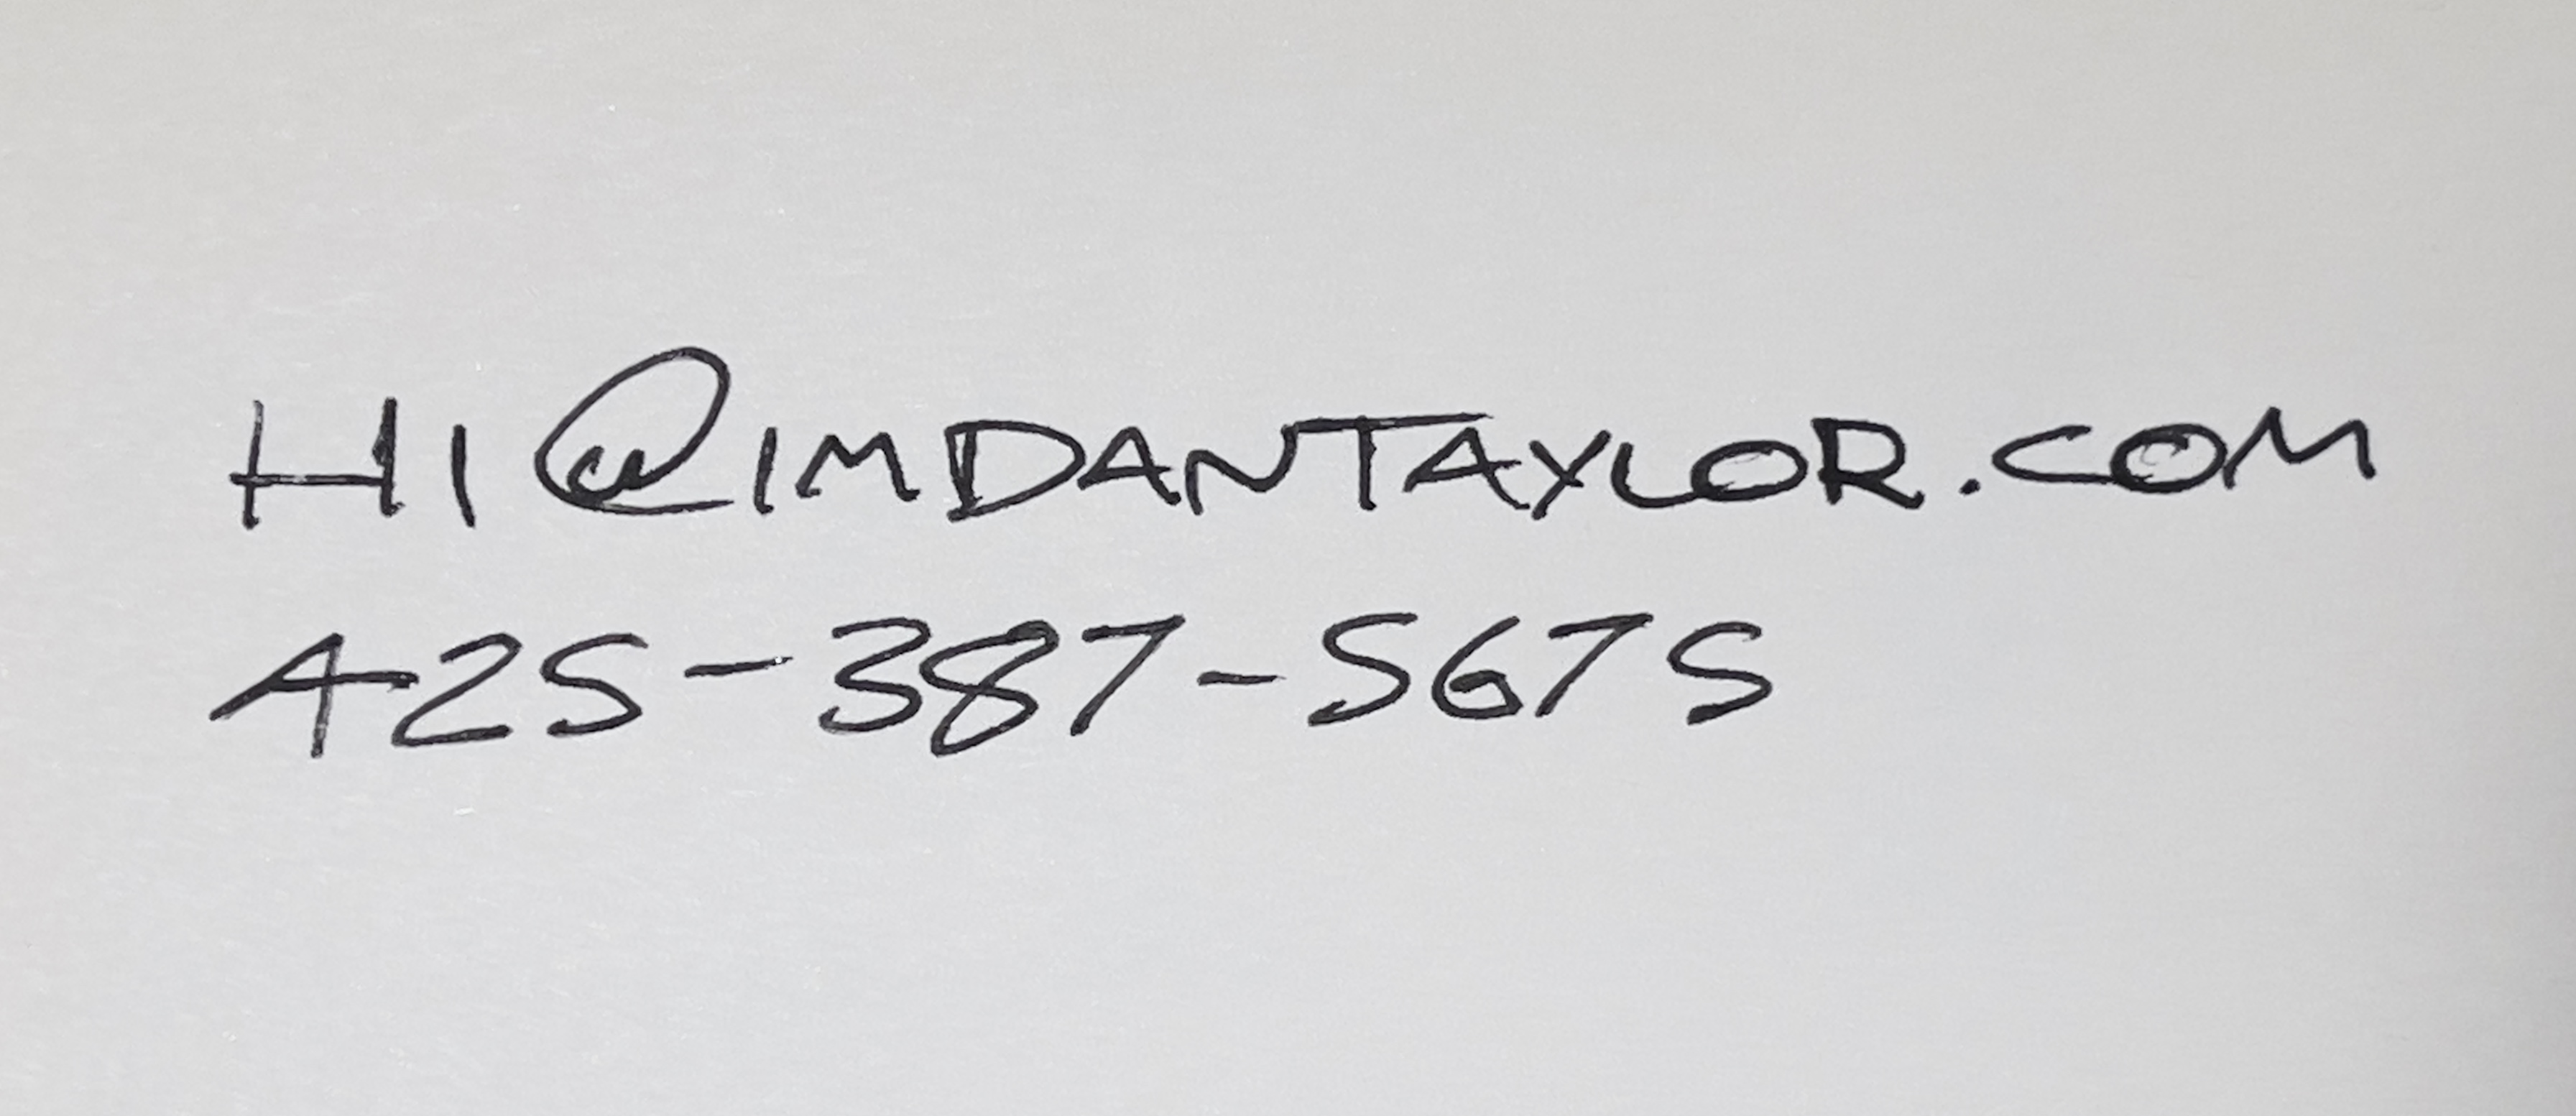 HI@IMDANTAYLOR.COM
425-387-5675